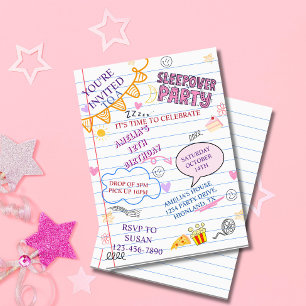 YOU'RE
INVITED
TO A
SLEEPOVER
PARTY
ZZZZ
IT'S TIME TO CELEBRATE
AMELIA'S
12TH
BIRTHDAY
SATURDAY
OCTOBER
14TH
DROP OF 5PM
PICK UP 10PM
AMELIA'S HOUSE
1234 PARTY DRIVE,
HIGHLAND, TX
RSVP TO
SUSAN
123-456-7890